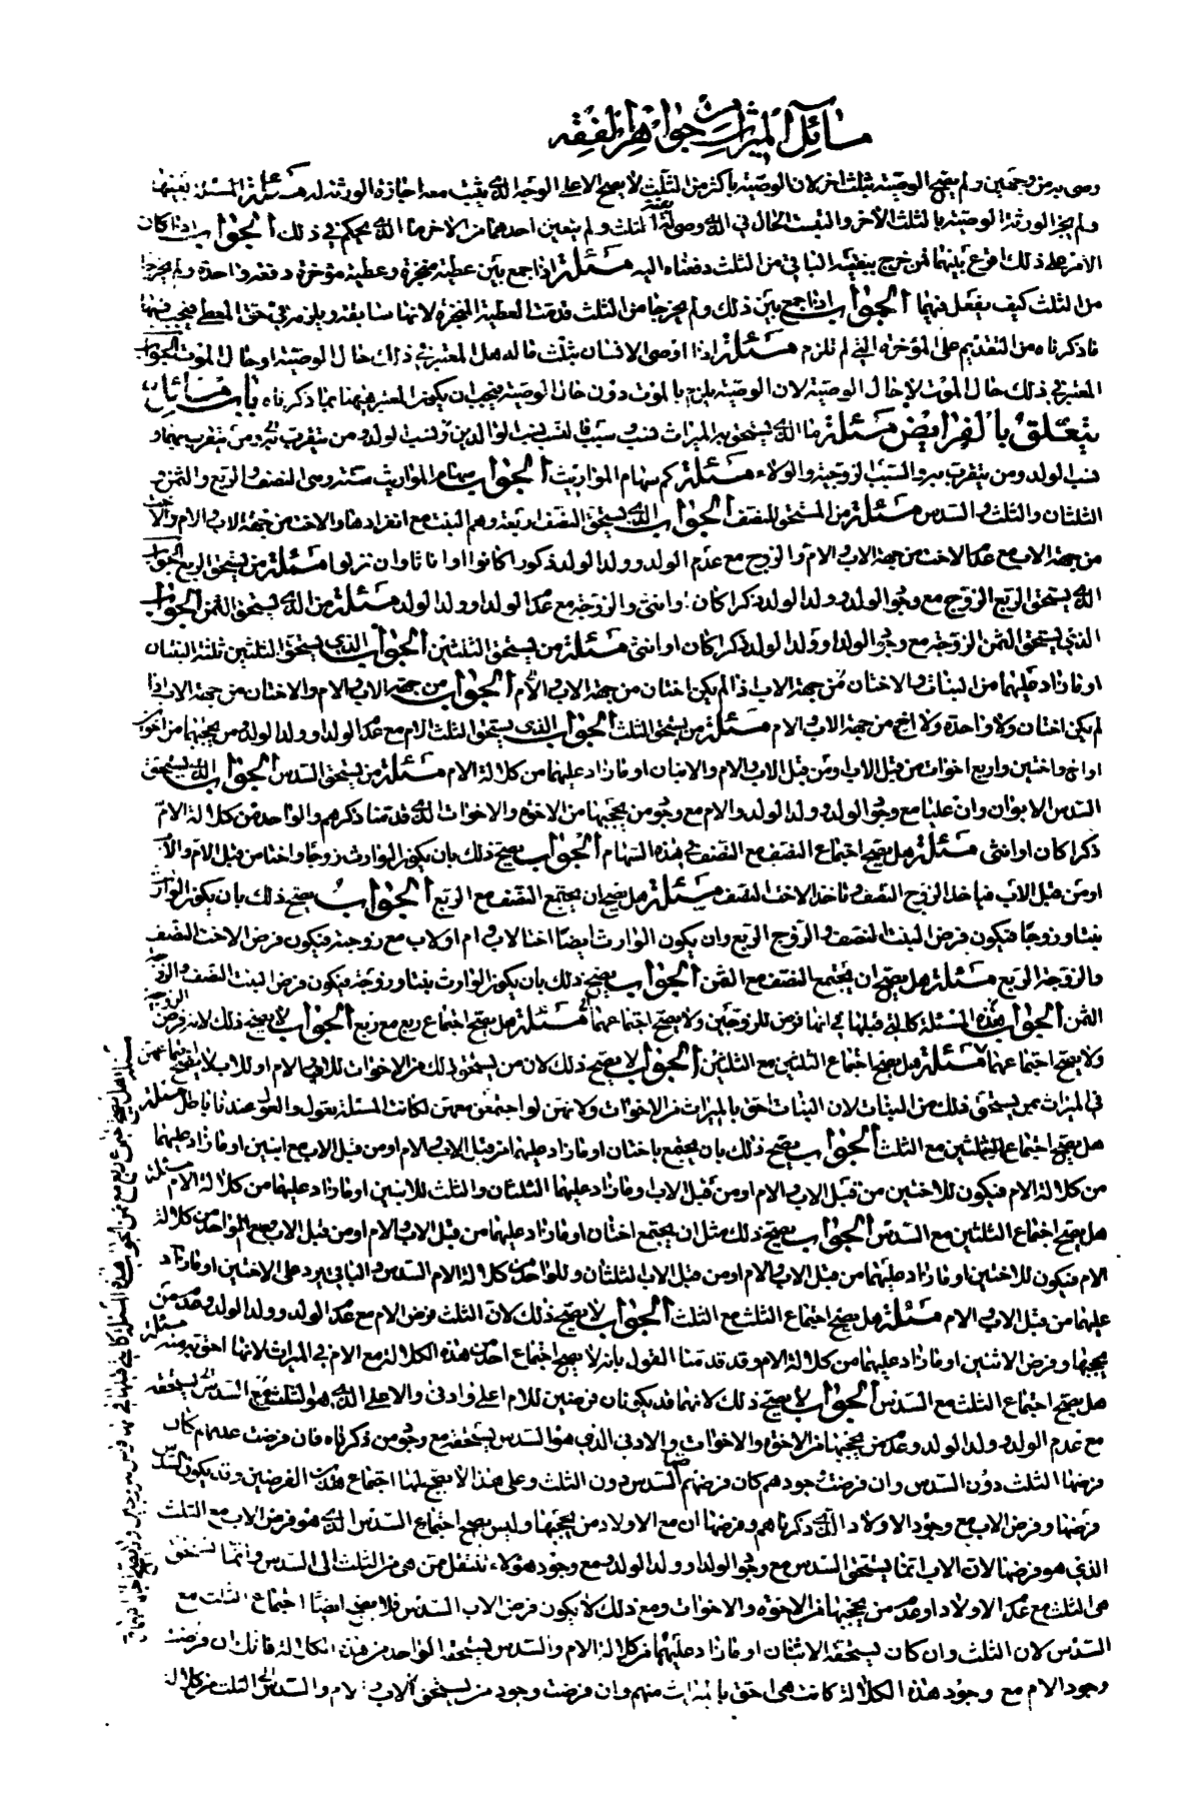 مسائل الميراث من جواهر الفقه
وصى به من وجهين ولم يصح الوصية بثلث اخر لان الوصية باكثر من الثلث لا يصح الا على الوجه الذى يثبت معه اجازة الورثة له مسئلة المسئلة بعينها
ولم يجز الورثة الوصية بالثلث الاخر والتبست الحال في الذى وصى له بالثلث ولم يتعين احدهما من الاخر ما الذى يحكم في ذلك الجواب اذا كان
الامر على ذلك اقرع بينهما فمن خرج بنفسه الباقي من الثلث دفعناه اليه مسئلة اذا جمع بين عطية منجزة وعطية مؤخرة دفعة واحدة ولم يخرجا
من الثلث كيف يفعل فيهما الجواب اذا جمع بين ذلك ولم يخرجا من الثلث قدمت العطية المنجزة لانها سابقة ويلزم في حق المعطى فيجب فيها
ما ذكرناه من التقديم على المؤخرة التي لم تلزم مسئلة اذا اوصى الانسان بثلث ماله هل المعتبر في ذلك حال الوصية او حال الموت الجواب
المعتبر في ذلك حال الموت لا حال الوصية لان الوصية يلزم بالموت دون حال الوصية فيجب ان يكون المعتبر فيها بما ذكرناه باب مسائل
يتعلق بالفرايض مسئلة ما الذى يستحق به الميراث نسب وسبب فالنسب نسب الوالدين ونسب الولد ومن يتقرب بهما ومن يتقرب بهما و
نسب الولد ومن يتقرب به والسبب الزوجية والولاء مسئلة كم سهام المواريث الجواب سهام المواريث ستة وهى النصف والربع والثمن و
الثلثان والثلث والسدس مسئلة من المستحق للنصف الجواب الذى يستحق النصف اربعة وهم البنت مع انفرادها والاخت من جهة الاب والام والاخت
من جهة الاب مع عدم الاخت من جهة الاب والام والزوج مع عدم الولد وولد الولد ذكورا كانوا او اناثا وان نزلوا مسئلة من يستحق الربع الجواب
الذى يستحق الربع الزوج مع وجود الولد وولد الولد ذكرا كان او انثى والزوجة مع عدم الولد او ولد الولد مسئلة من الذى يستحق الثمن الجواب
الذى يستحق الثمن الزوجة مع وجود الولد او ولد الولد ذكرا كان او انثى مسئلة من يستحق الثلثين الجواب الذى يستحق الثلثين ثلثة البنتان
او ما زاد عليهما من البنات والاختان من جهة الاب اذا لم يكن اختان من جهة الاب والام الجواب من جهة الاب والام والاختان من جهة الاب اذا
لم يكن اختان ولا واحدة ولا اخ من جهة الاب والام مسئلة من يستحق الثلث الجواب الذى يستحق الثلث الام مع عدم الولد او ولد الولد ومن يحجبها من اخوين
او اخ واختين او اربع اخوات من قبل الاب او من قبل الاب والام والاثنان او ما زاد عليهما من كلالة الام مسئلة من يستحق السدس الجواب الذى يستحق
السدس الابوان وان عليا مع وجود الولد وولد الولد والام مع وجود من يحجبها من الاخوة والاخوات الذى قدمنا ذكرهم والواحد من كلالة الام
ذكرا كان او انثى مسئلة هل يصح اجتماع النصف مع النصف في هذه السهام الجواب يصح ذلك بان يكون الوارث زوجا واختا من قبل الام والاب
او من قبل الاب فياخذ الزوج النصف وتاخذ الاخت النصف مسئلة هل يصح ان يجتمع النصف مع الربع الجواب يصح ذلك بان يكون الوارث
بنتا وزوجا فيكون فرض البنت النصف والزوج الربع وان يكون الوارث ايضا اختا لاب وام او لاب مع زوجة فيكون فرض الاخت النصف
والزوجة الربع مسئلة هل يصح ان يجتمع النصف مع الثمن الجواب يصح ذلك بان يكون الوارث بنتا وزوجة فيكون فرض البنت النصف والزوجة
الثمن الجواب هذه المسئلة كالتى قبلها في انها فرض للزوجين ولا يصح اجتماعهما مسئلة هل يصح اجتماع ربع مع ربع الجواب لا يصح ذلك لانه فرض الزوجين
ولا يصح اجتماعهما مسئلة هل يصح اجتماع الثلثين مع الثلثين الجواب لا يصح ذلك لان من يستحق ذلك من الاخوات للاب والام او للاب لا يصح اجتماعهن
في الميراث بمن يستحق ذلك من البنات لان البنات احق بالميراث من الاخوات ولانهن لو اجتمعن معهن لكانت المسئلة بعول والعول عندنا باطل مسئلة
هل يصح اجتماع الثلثين مع الثلث الجواب يصح ذلك بان يجتمع باختان او ما زاد عليهما من قبل الاب والام او من قبل الاب مع اثنين او ما زاد عليهما
من كلالة الام فيكون للاختين من قبل الاب والام او من قبل الاب او ما زاد عليهما الثلثان والثلث للاثنين او ما زاد عليهما من كلالة الام مسئلة
هل يصح اجتماع الثلثين مع السدس الجواب يصح ذلك مثل ان يجتمع اختان او ما زاد عليهما من قبل الاب والام او من قبل الاب مع الواحد من كلالة
الام فيكون للاختين او ما زاد عليهما من قبل الاب والام او من قبل الاب الثلثان وللواحد من كلالة الام السدس والباقى يرد على الاختين او ما زاد
عليهما من قبل الاب والام مسئلة هل يصح اجتماع الثلث مع الثلث الجواب لا يصح ذلك لان الثلث فرض الام مع عدم الولد وولد الولد وعدم من
يحجبها وفرض الاثنين او ما زاد عليهما من كلالة الام وقد قدمنا القول بانه لا يصح اجتماع احد من هذه الكلالة مع الام في الميراث لانها احق به منه مسئلة
هل يصح اجتماع الثلث مع السدس الجواب لا يصح ذلك لانهما قد يكونان فرضين للام اعلى وادنى والاعلى الذى هو الثلث مع السدس الذى يستحقه
مع عدم الولد وولد الولد وعدم من يحجبها من الاخوة والاخوات والادنى الذى هو السدس يستحقه مع وجود من ذكرناه فان فرضت عدمهم كان
فرضها الثلث دون السدس وان فرضت وجودهم كان فرضهم السدس دون الثلث وعلى هذا لا يصح لها اجتماع هذين الفرضين وقد يكون السدس
فرضها وفرض الاب مع وجود الاولاد الذى ذكرناهم وفرضها ان مع الاولاد من يحجبها وليس يصح اجتماع السدس الذى هو فرض الاب مع الثلث
الذى هو فرضها لان الاب انما يستحق السدس مع وجود الولد او ولد الولد ومع وجود هؤلاء تنتقل هى من الثلث الى السدس وانما تستحق
هى الثلث مع عدم الاولاد او عدم من يحجبها من الاخوة والاخوات ومع ذلك لا يكون فرض الاب السدس فلا يصح ايضا اجتماع الثلث مع
السدس لان الثلث وان كان يستحقه الاثنان او ما زاد عليهما من كلالة الام والسدس يستحقه الواحد من هذه الكلالة فانك ان فرضت
وجود الام مع وجود هذه الكلالة كانت هى احق بالميراث منهم وان فرضت وجود من يستحق الاب والام والسدس الى الثلث من كلالة
مسئلة هل يصح اجتماع ربع مع ثمن الجواب هذه المسئلة كالتى قبلها في انه فرض من زوجين ولا يصح اجتماعهما